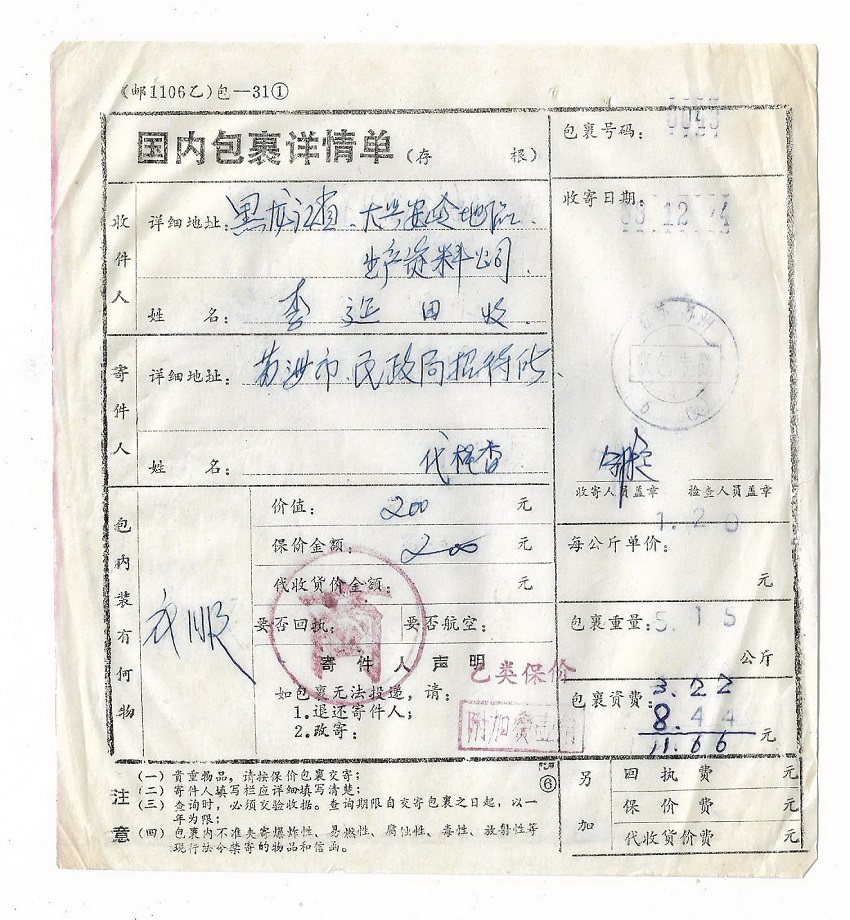 (邮1106乙)包—31①
国内包裹详情单(存 根)
包裹号码: 0045
收寄日期:
收件人
详细地址:黑龙江省、大兴安岭地区、
生产资料公司
姓 名: 李延田收
寄件人
详细地址: 苏州市、民政局招待所、
姓 名: 代
收寄人员盖章 检查人员盖章
包内装有何物
衣服
价值: 200 元
保价金额: 200 元
代收货价金额: 元
要否回执: 要否航空:
寄件人声明
如包裹无法投递,请:
1.退还寄件人;
2.改寄:
乙类保价
附加费
1.20
每公斤单价:
元
包裹重量: 5.15
公斤
3.22
包裹资费: 8.44
11.66 元
⑥
注意
(一) 贵重物品,请按保价包裹交寄;
(二) 寄件人填写栏应详细填写清楚;
(三) 查询时,必须交验收据。查询期限自交寄包裹之日起,以一
年为限;
(四) 包裹内不准夹寄爆炸性、易燃性、腐蚀性、毒性、放射性等
现行法令禁寄的物品和信函。
另加
回执费 元
保价费 元
代收货价费 元